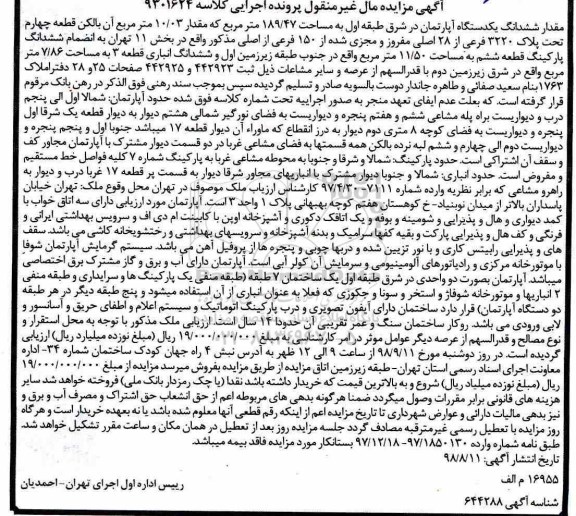 آگهی مزایده مال غیرمنقول پرونده اجرایی کلاسه ۹۳۰۱۶۲۴
مقدار ششدانگ یکدستگاه آپارتمان در شرق طبقه اول به مساحت ۱۸۹/۴۷ متر مربع که مقدار ۱۰/۰۳ متر مربع آن بالکن قطعه چهارم
تحت پلاک ۳۲۲۰ فرعی از ۲۸ اصلی مفروز و مجزی شده از ۱۵۰ فرعی از اصلی مذکور واقع در بخش ۱۱ تهران به انضمام ششدانگ
پارکینگ قطعه ششم به مساحت ۱۱/۵۰ متر مربع واقع در جنوب طبقه زیرزمین اول و ششدانگ انباری قطعه ۳ به مساحت ۷/۸۶ متر
مربع واقع در شرق زیرزمین دوم با قدرالسهم از عرصه و سایر مشاعات ذیل ثبت ۴۴۲۹۲۳ و ۴۴۲۹۲۵ صفحات ۲۵و ۲۸ دفتراملاک
۱۷۶۳بنام سعید صفائی و طاهره جاندار دوست بالسویه صادر و تسلیم گردیده سپس بموجب سند رهنی فوق الذکر در رهن بانک مرقوم
قرار گرفته است. که بعلت عدم ایفای تعهد منجر به صدور اجراییه تحت شماره کلاسه فوق شده حدود آپارتمان: شمالا اول الی پنجم
درب و دیواریست براه پله مشاعی ششم و هفتم پنجره و دیواریست به فضای نورگیر شمالی هشتم دیوار به دیوار قطعه یک شرقا اول
پنجره و دیواریست به فضای کوچه ۸ متری دوم دیوار به درز انقطاع که ماوراء آن دیوار قطعه ۱۷ میباشد جنوبا اول و پنجم پنجره و
دیواریست دوم الی چهارم و ششم لبه نرده بالکن همه قسمتها به فضای مشاعی غربا در دو قسمت دیوار مشترک با آپارتمان مجاور کف
و سقف آن اشتراکی است. حدود پارکینگ: شمالا و شرقا و جنوبا به محوطه مشاعی غربا به پارکینگ شماره ۷ کلیه فواصل خط مستقیم
و مفروض است. حدود انباری: شمالا و جنوبا دیوار مشترک با انباریهای مجاور شرقا دیوار به قسمت پر قطعه ۱۷ غربا درب و دیوار به
راهرو مشاعی که برابر نظریه وارده شماره کارشناس ارزیاب ملک موصوف در تهران محل وقوع ملک: تهران خیابان
پاسداران بالاتر از میدان نوبنیاد- خ کوهستان هفتم کوچه بهبهانی پلاک ۱ واحد ۳ است. آپارتمان مورد ارزیابی دارای سه اتاق خواب با
کمد دیواری و هال و پذیرایی و شومینه و بوفه و یک اتاقک دکوری و آشپزخانه اوپن با کابینت ام دی اف و سرویس بهداشتی ایرانی و
فرنگی و کف هال و پذیرایی پارکت و بقیه کفهاسرامیک و بدنه آشپزخانه و سرویسهای بهداشتی و رختشویخانه کاشی می باشد. سقف
های و پذیرایی رابیتس کاری و با نور تزیین شده و دربها چوبی و پنجره ها از پروفیل آهن می باشد. سیستم گرمایش آپارتمان شوفاژ
با موتورخانه مرکزی و رادیاتورهای آلومینیومی و سرمایش آن کولر آبی است. آپارتمان دارای آب و برق و گاز مشترک برق اختصاصی
میباشد. آپارتمان بصورت دو واحدی در شرق طبقه اول یک ساختمان ۷ طبقه (طبقه منفی یک پارکینگ ها و سرایداری و طبقه منفی
۲ انباریها و موتورخانه شوفاژ و استخر و سونا و جکوزی که فعلا به عنوان انباری از آن استفاده میشود و پنج طبقه دیگر در هر طبقه
دو دستگاه آپارتمان) قرار دارد ساختمان دارای آیفون تصویری و درب پارکینگ اتوماتیک و سیستم اعلام و اطفای حریق و آسانسور و
لابی ورودی می باشد. روکار ساختمان سنگ و عمر تقریبی آن حدودا ۱۴ سال است. ارزیابی ملک مذکور با توجه به محل استقرار و
نوع مصالح و قدرالسهم از عرصه دیگر عوامل موثر در امر کارشناسی به مبلغ ۱۹/۰۰۰/۰۰۰/۰۰۰ ریال (مبلغ نوزده میلیارد ریال) ارزیابی
گردیده است. در روز دوشنبه مورخ ۹۸/۹/۱۱ از ساعت ۹ الی ۱۲ ظهر به آدرس نبش ۴ راه جهان کودک ساختمان شماره ۳۴- اداره
معاونت اجرای اسناد رسمی استان تهران- طبقه زیرزمین اتاق مزایده از طریق مزایده بفروش میرسد مزایده از مبلغ ۱۹/۰۰۰/۰۰۰/۰۰۰
ریال (مبلغ نوزده میلیاد ریال) شروع و به بالاترین قیمت که خریدار داشته باشد نقدا (یا چک رمزدار بانک ملی) فروخته خواهد شد سایر
هزینه های قانونی برابر مقررات وصول میگردد ضمنا هرگونه بدهی های مربوطه اعم از حق انشعاب حق اشتراک و مصرف آب و برق و
نیز بدهی مالیات دارائی و عوارض شهرداری تا تاریخ مزایده اعم از اینکه رقم قطعی آنها معلوم شده باشد یا نه بعهده خریدار است و هرگاه
روز مزایده با تعطیل رسمی غیرمترقبه مصادف گردد جلسه مزایده روز بعد از تعطیل در همان مکان و ساعت مقرر تشکیل خواهد شد.
طبق نامه شماره وارده ۹۷/۱۸۵۰۱۳۰- ۹۷/۱۲/۱۸ بستانکار مورد مزایده فاقد بیمه میباشد.
تاریخ انتشار آگهی: ۹۸/۸/۱۱
۱۶۹۵۵ م الف
رییس اداره اول اجرای تهران- احمدیان
شناسه آگهی ۶۴۴۲۸۸